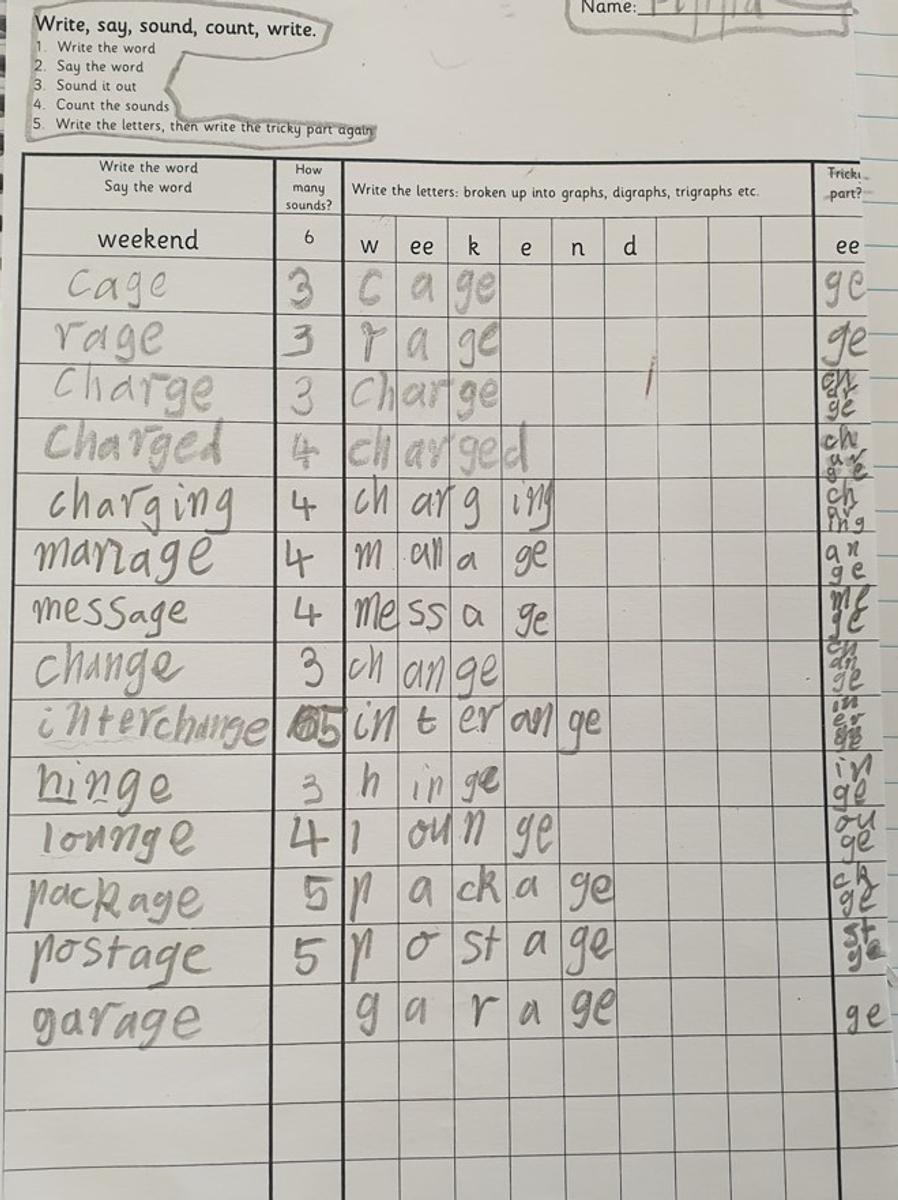 Name:
Write, say, sound, count, write.
1. Write the word
2. Say the word
3. Sound it out
4. Count the sounds
5. Write the letters, then write the tricky part again
Write the word
Say the word
How many sounds?
Write the letters: broken up into graphs, digraphs, trigraphs etc.
part?
weekend 6 w ee k e n d ee
cage 3 c a ge ge
rage 3 r a ge ge
charge 3 ch ar ge ge
charged 4 ch ar ge d ch
charging 4 ch ar g ing ch ar ing
manage 4 m an a ge an ge
message 4 me ss a ge me ge
change 3 ch an ge ch an ge
interchange 5 in t er an ge in er ge
hinge 3 h in ge in ge
lounge 4 l ou n ge ou ge
package 5 p a ck a ge ck ge
postage 5 p o st a ge st ge
garage g a r a ge ge